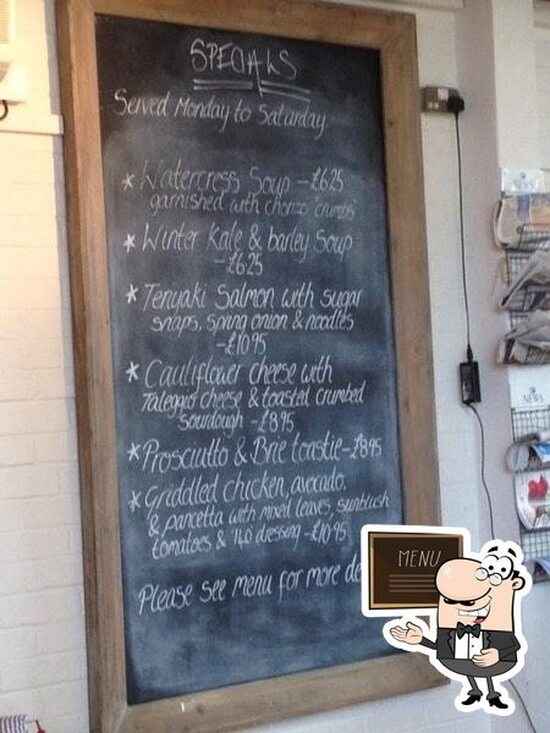 SPECIALS
Served Monday to Saturday
* Watercress Soup - £6.25
garnished with chorizo 'crumbs'
* Winter Kale & barley Soup
- £6.25
* Teriyaki Salmon with sugar
snaps, spring onion & noodles
- £10.95
* Cauliflower cheese with
Taleggio cheese & toasted crumbed
sourdough - £8.95
* Prosciutto & Brie toastie - £8.95
* Griddled chicken, avocado,
& pancetta with mixed leaves, sunblush
tomatoes & '140' dressing - £10.95
Please see menu for more de
MENU
NEWS